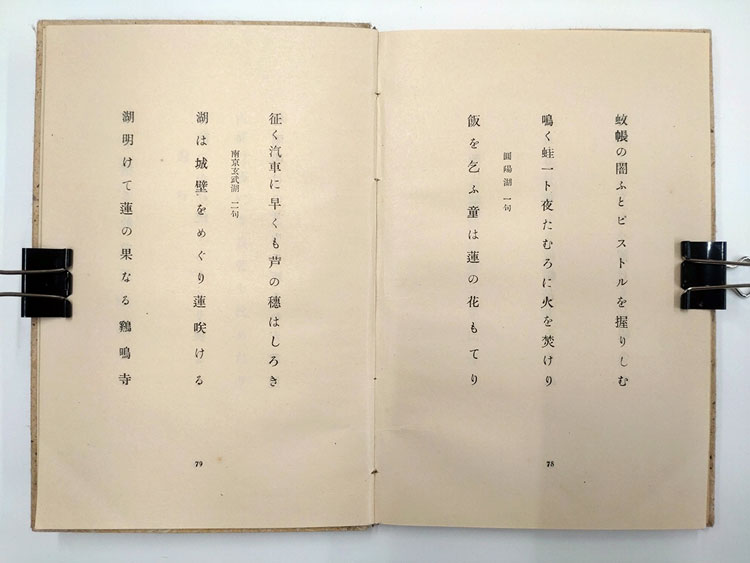 蚊帳の闇ふとピストルを握りしむ
鳴く蛙一ト夜たむろに火を焚けり
圓陽湖 一句
飯を乞ふ童は蓮の花もてり
78
征く汽車に早くも芦の穂はしろき
南京玄武湖 二句
湖は城壁をめぐり蓮咲ける
湖明けて蓮の果なる鶏鳴寺
79